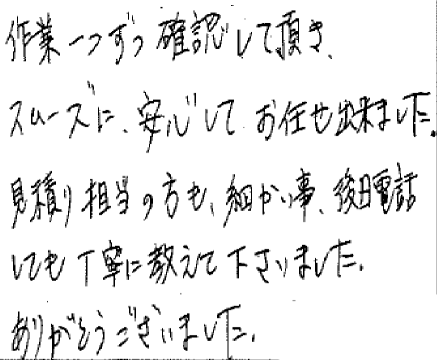 作業一つずつ確認して頂き、
スムーズに、安心してお任せ出来ました。
見積り担当の方も、細かい事、後日電話
しても丁寧に教えて下さいました。
ありがとうございました。